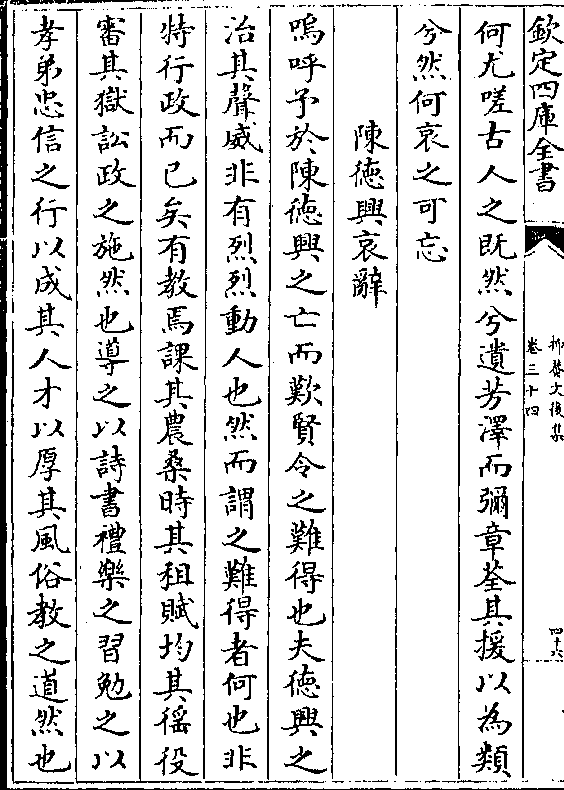 欽定四庫全書
抑菴文後集
卷三十四
四十六
何尤嗟古人之既然兮遺芳澤而彌章荃其援以為類
兮然何哀之可忘
陳德興哀辭
嗚呼予於陳德興之亡而歎賢令之難得也夫德興之
治其聲威非有烈烈動人也然而謂之難得者何也非
特行政而已矣有教焉課其農桑時其租賦均其徭役
審其獄訟政之施然也導之以詩書禮樂之習勉之以
孝弟忠信之行以成其人才以厚其風俗教之道然也